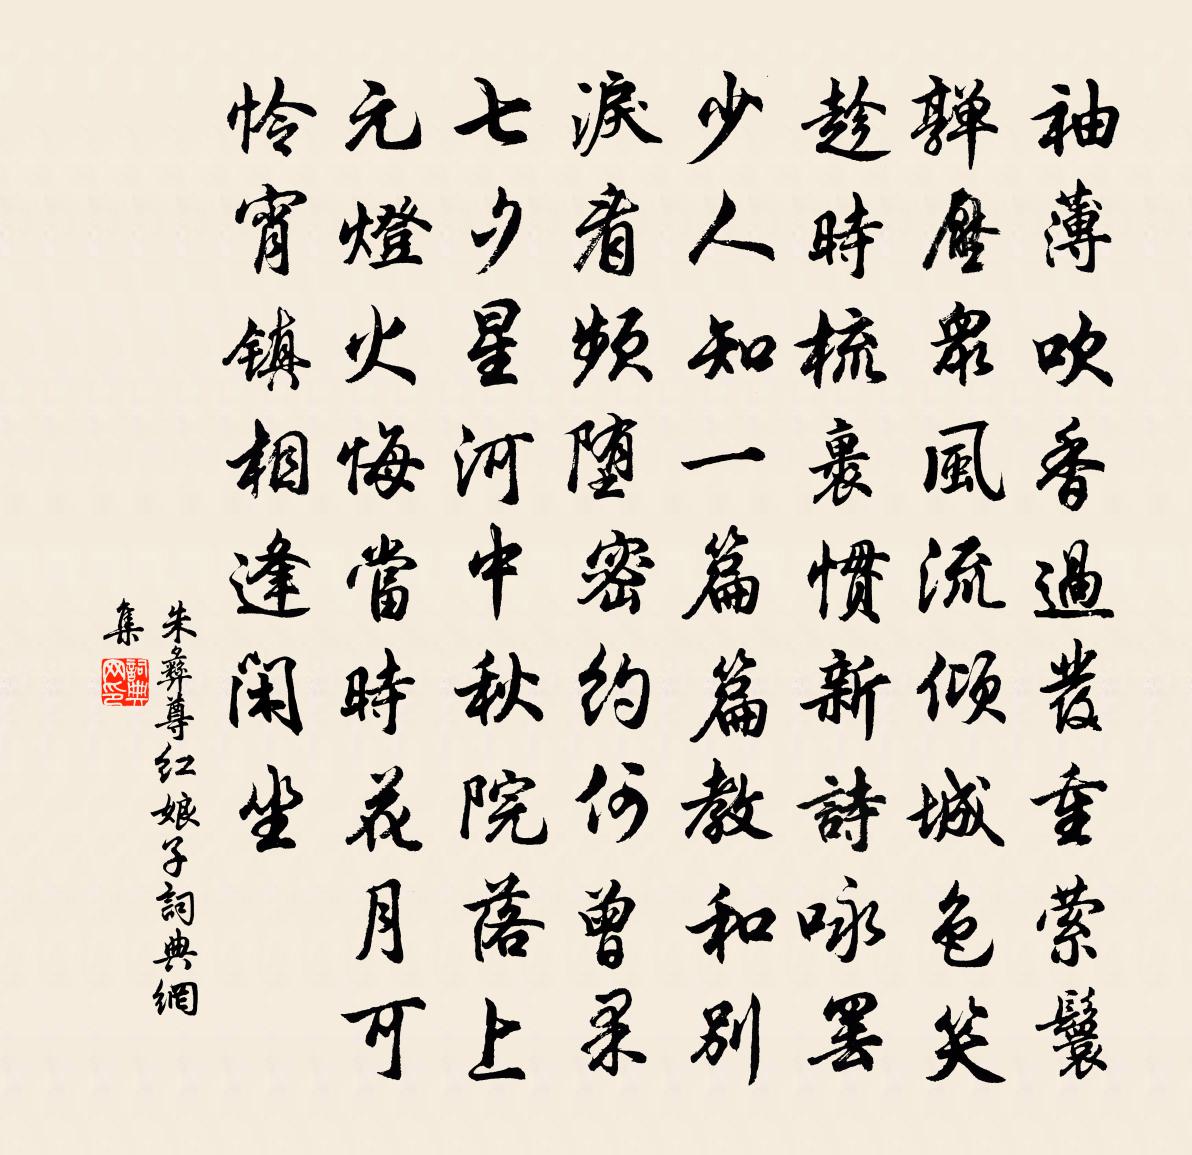 袖薄吹香過發重縈鬟
嚲壓衆風流傾城色笑
趁時梳裹慣新詩咏罷
少人知一篇篇教和別
淚看頻墮密約何曾果
七夕星河中秋院落上
元燈火悔當時花月可
憐宵鎮相逢閑坐
朱彝尊紅娘子詞典網
集
詞典網印